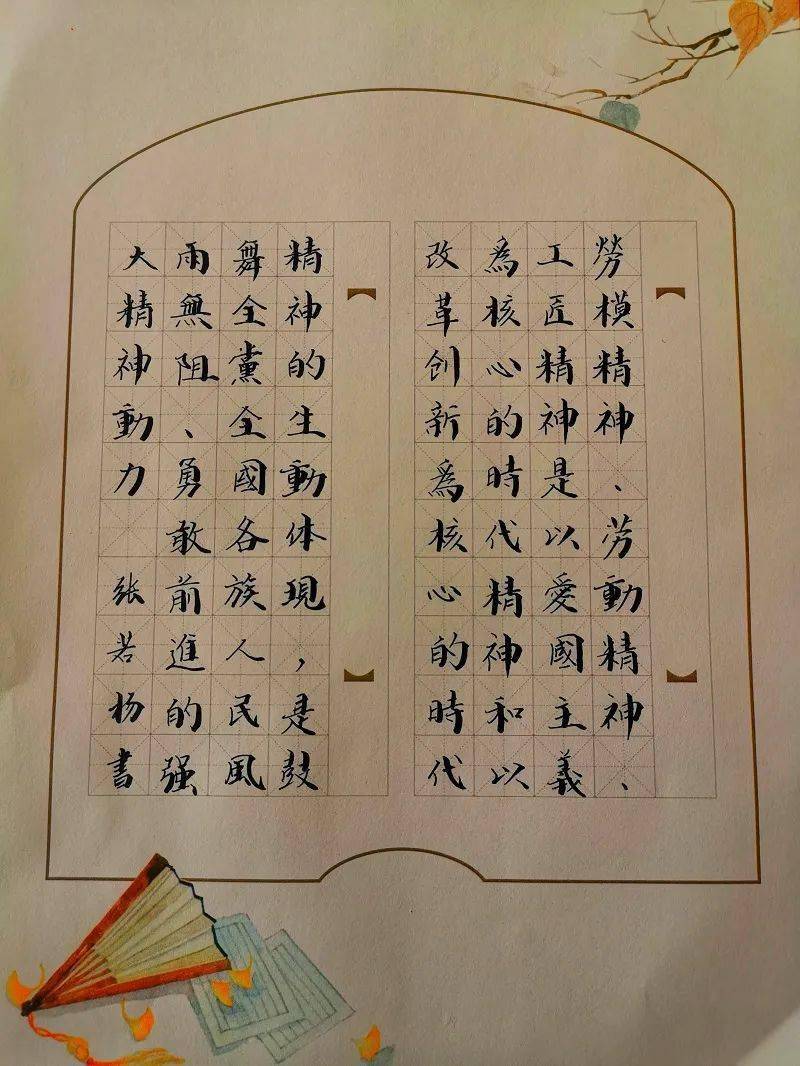 勞模精神、劳動精神、
工匠精神是以愛國主義
爲核心的時代精神和以
改革创新爲核心的時代
精神的生動体現，是鼓
舞全黨全國各族人民風
雨無阻、勇敢前進的强
大精神動力
张若杨書